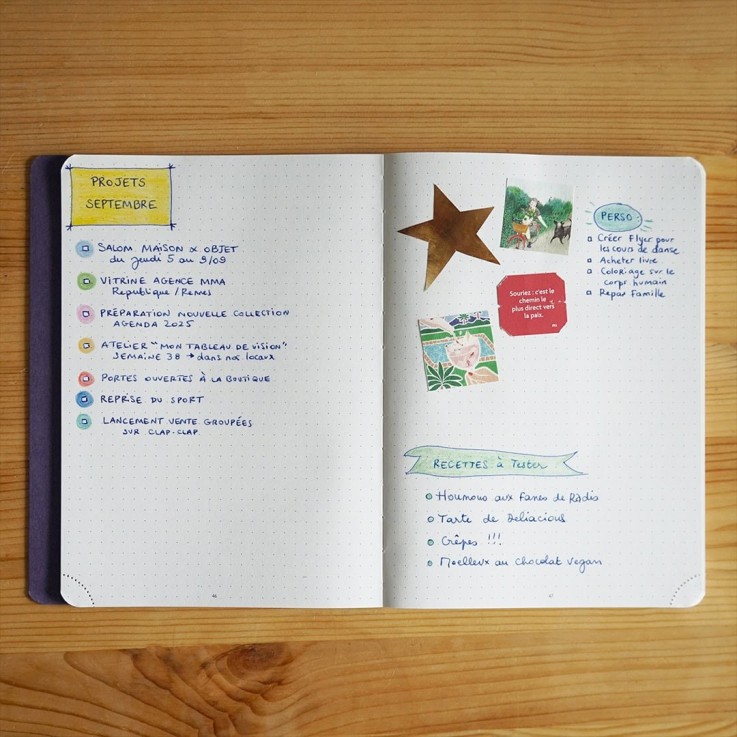 PROJETS
SEPTEMBRE
SALON MAISON & OBJET
du jeudi 5 au 9/09
VITRINE AGENCE MMA
Republique / Rennes
PRÉPARATION NOUVELLE COLLECTION
AGENDA 2025
ATELIER "MON TABLEAU DE VISION"
SEMAINE 38 → dans nos locaux
PORTES OUVERTES À LA BOUTIQUE
REPRISE DU SPORT
LANCEMENT VENTE GROUPÉES
SUR CLAP-CLAP.
PERSO
Créer Flyer pour
les cours de danse
Acheter livre
Coloriage sur le
corps humain
Repas Famille
Souriez : c'est le
chemin le
plus direct vers
la paix.
RECETTES à Tester
Houmous aux fanes de Radis
Tarte de
Crêpes !!!
Moelleux au chocolat vegan